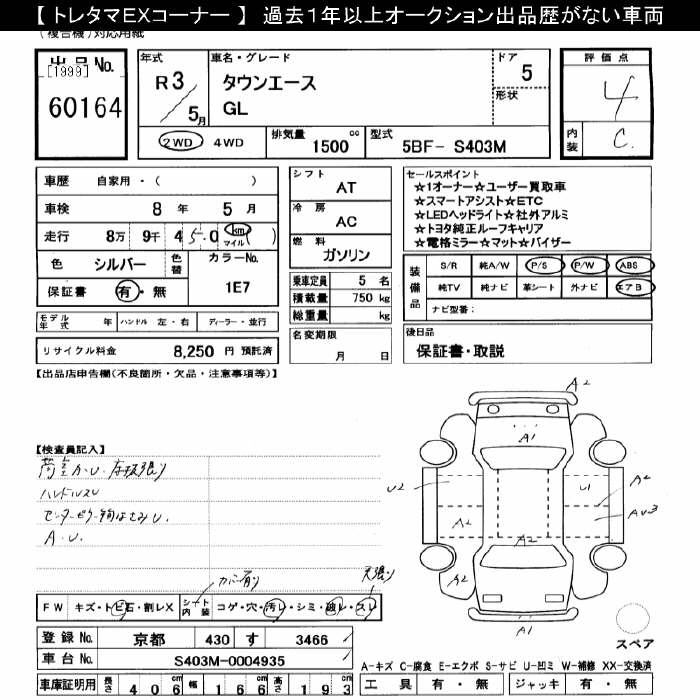 【 トレタマEXコーナー 】 過去１年以上オークション出品歴がない車両
(複合機)対応用紙
出品No.
[1999]
60164
年式
R 3
5月
車名・グレード
タウンエース
GL
ドア
5
形状
評価点
4
内装
C.
2WD 4WD
排気量 1500 cc
型式 5BF- S403M
車歴 自家用・( )
車検 8年 5月
走行 8万 9千 4 5 0 km マイル ( )
色 シルバー 色替
カラーNo.
1E7
保証書 有・無
モデル年式 年 ハンドル 左・右 ディーラー・並行
リサイクル料金 8,250 円 預託済
シフト
AT
冷房
AC
燃料
ガソリン
乗車定員 5 名
積載量 750 kg
総重量 kg
名変期限
月 日
セールスポイント
☆１オーナー☆ユーザー買取車
☆スマートアシスト☆ETC
☆LEDヘッドライト☆社外アルミ
☆トヨタ純正ルーフキャリア
☆電格ミラー☆マット☆バイザー
装備品
S/R 純A/W P/S P/W ABS
純TV 純ナビ 革シート 外ナビ エアB
ナビ型番:
後日品
保証書・取説
【出品店申告欄(不良箇所・欠品・注意事項等)】
【検査員記入】
荷室カバU. 床板張り
ハンドルスレ
A.U.
A2
A1
U2
U1
A2
A2
AU3
A2
A2
A1
天張り
FW キズ・トビ石・割レX
シート内装 コゲ・穴・汚レ・シミ・破レ・スレ
登録No. 京都 430 す 3466
車台No. S403M-0004935
車庫証明用 長さ 406 cm 幅 166 cm 高さ 193 cm
スペア
A-キズ C-腐食 E-エクボ S-サビ U-凹ミ W-補修 XX-交換済
工具 有・無 ジャッキ 有・無